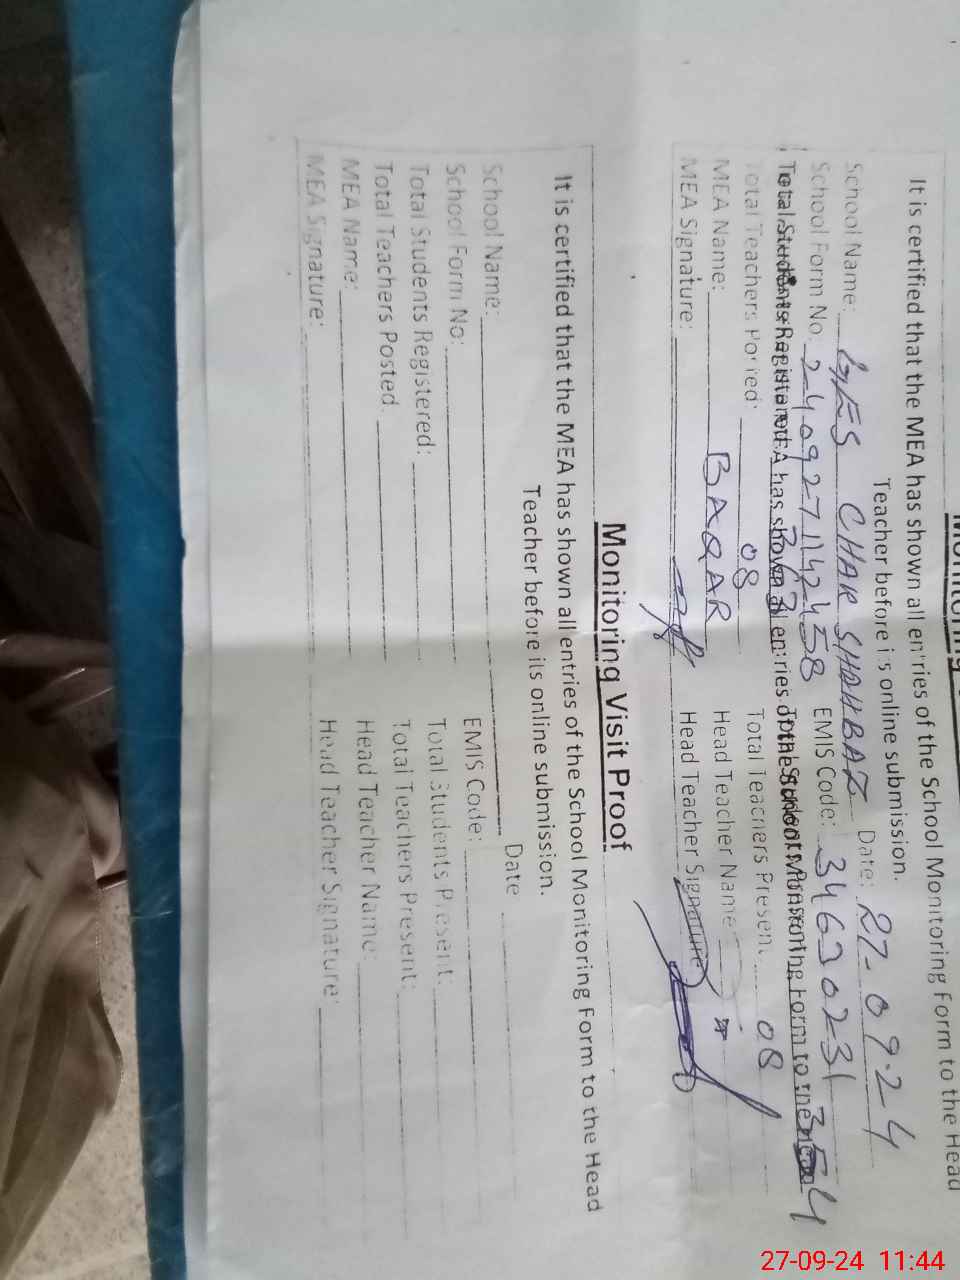 It is certified that the MEA has shown all entries of the School Monitoring Form to the Head
Teacher before its online submission.
School Name: GES CHAK SHAHBAZ Date: 27-09-24
School Form No: EMIS Code: 34630231
Total Students Registered: 363 354
Total Teachers Posted: 08 Total Teachers Present: 08
MEA Name: BAQAR Head Teacher Name
MEA Signature: Head Teacher Signature
Monitoring Visit Proof
It is certified that the MEA has shown all entries of the School Monitoring Form to the Head
Teacher before its online submission.
School Name: Date
School Form No: EMIS Code:
Total Students Registered: Total Students Present:
Total Teachers Posted: Total Teachers Present:
MEA Name: Head Teacher Name:
MEA Signature: Head Teacher Signature:
27-09-24 11:44